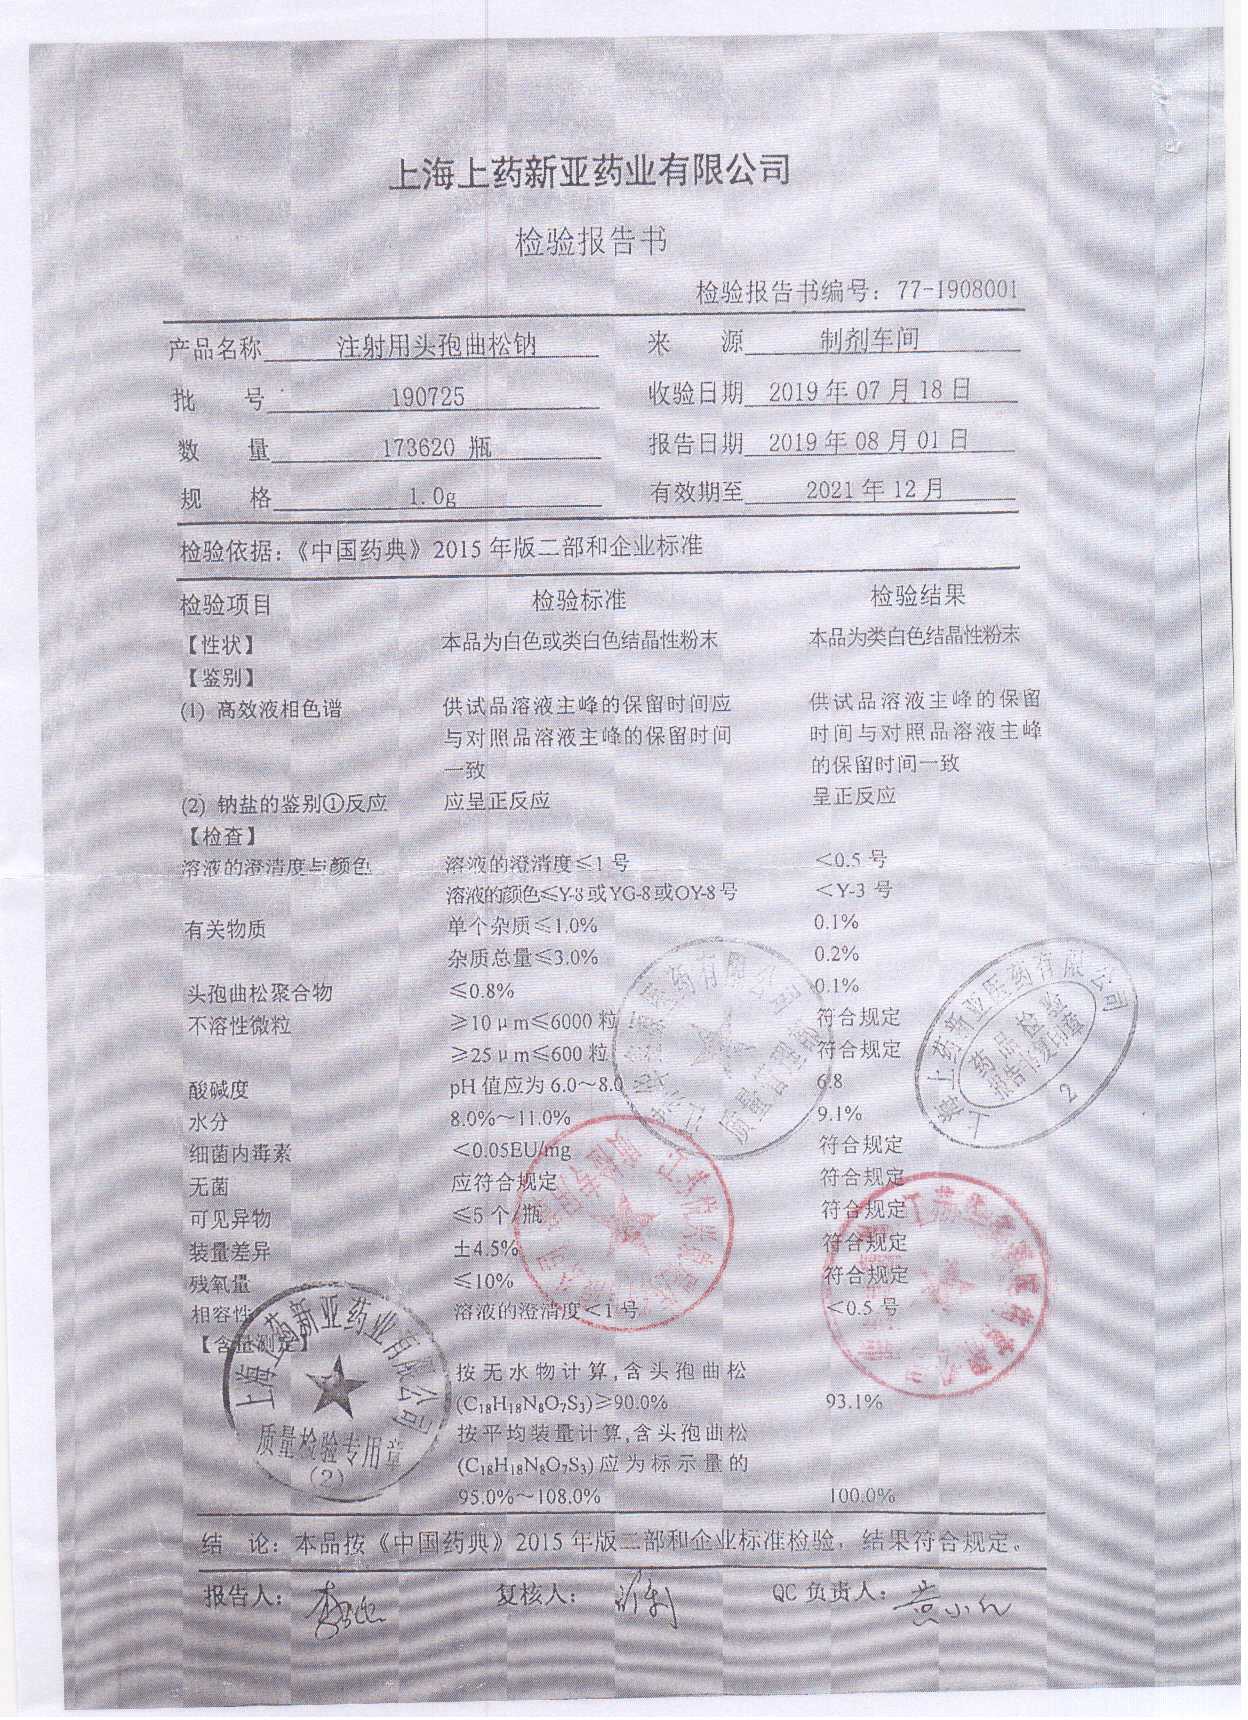 上海上药新亚药业有限公司
检验报告书
检验报告书编号：77-1908001
产品名称 注射用头孢曲松钠 来 源 制剂车间
批 号 190725 收验日期 2019 年 07 月 18 日
数 量 173620 瓶 报告日期 2019 年 08 月 01 日
规 格 1.0g 有效期至 2021 年 12 月
检验依据：《中国药典》2015 年版二部和企业标准
检验项目 检验标准 检验结果
【性状】 本品为白色或类白色结晶性粉末 本品为类白色结晶性粉末
【鉴别】
(1) 高效液相色谱 供试品溶液主峰的保留时间应 供试品溶液主峰的保留
与对照品溶液主峰的保留时间 时间与对照品溶液主峰
一致 的保留时间一致
(2) 钠盐的鉴别①反应 应呈正反应 呈正反应
【检查】
溶液的澄清度与颜色 溶液的澄清度≤1 号 <0.5 号
溶液的颜色≤Y-8 或 YG-8 或 OY-8 号 <Y-3 号
有关物质 单个杂质≤1.0% 0.1%
杂质总量≤3.0% 0.2%
头孢曲松聚合物 ≤0.8% 0.1%
不溶性微粒 ≥10μm≤6000 粒 符合规定
≥25μm≤600 粒 符合规定
酸碱度 pH 值应为 6.0～8.0 6.8
水分 8.0%～11.0% 9.1%
细菌内毒素 <0.05EU/mg 符合规定
无菌 应符合规定 符合规定
可见异物 ≤5 个/瓶 符合规定
装量差异 ±4.5% 符合规定
残氧量 ≤10% 符合规定
相容性 溶液的澄清度<1 号 <0.5 号
【含量测定】
按无水物计算,含头孢曲松
(C₁₈H₁₈N₈O₇S₃)≥90.0% 93.1%
按平均装量计算,含头孢曲松
(C₁₈H₁₈N₈O₇S₃)应为标示量的
95.0%～108.0% 100.0%
结 论：本品按《中国药典》2015 年版二部和企业标准检验，结果符合规定。
报告人： 复核人： QC 负责人：
上海上药新亚药业有限公司
质量检验专用章
(2)
上药新亚医药有限公司
药品检验
报告书复印章
2
医药有限公司
质量管理部